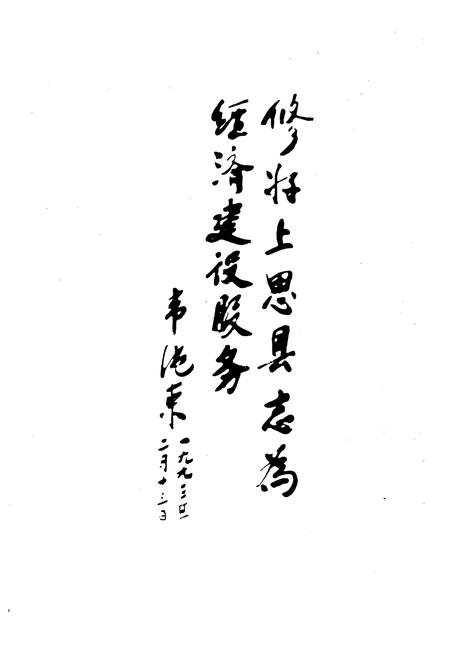 修好上思县志為
經济建设服务
韦纯束
一九九三年
二月十三日